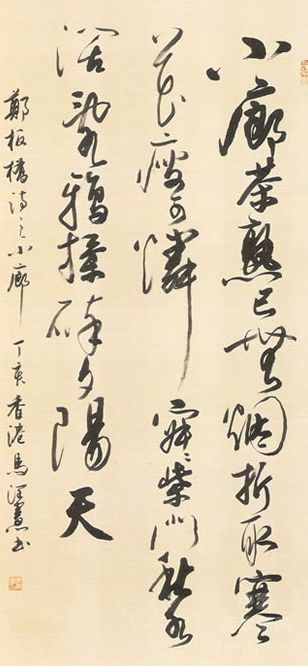 小廊茶熟已無烟折取寒
花瘦可憐寂〻柴門秋水
闊亂鴉揉碎夕陽天
鄭板橋詩之小廊 丁亥香港馬書